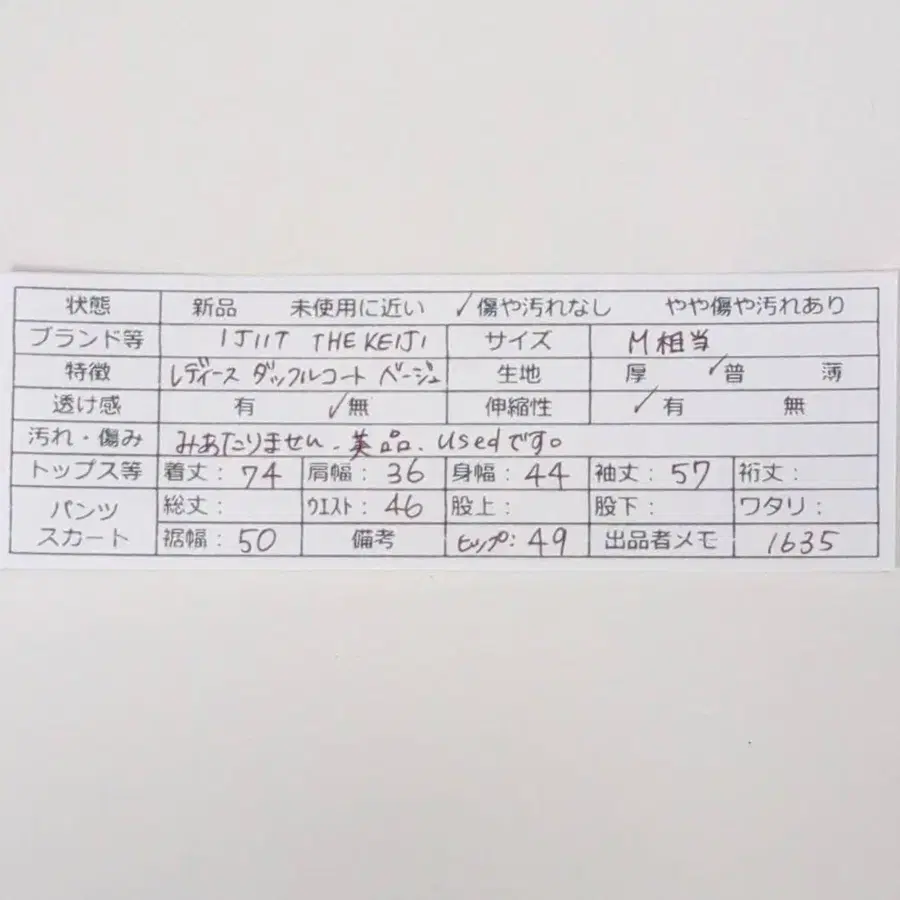 状態 新品 未使用に近い ✓傷や汚れなし やや傷や汚れあり
ブランド等 IJIIT THE KEIJI サイズ M相当
特徴 レディース ダッフルコート ベージュ 生地 厚 ✓普 薄
透け感 有 ✓無 伸縮性 ✓有 無
汚れ・傷み みあたりません、美品、usedです。
トップス等 着丈:74 肩幅:36 身幅:44 袖丈:57 裄丈:
パンツ 総丈: ウエスト:46 股上: 股下: ワタリ:
スカート 裾幅:50 備考 ヒップ:49 出品者メモ 1635